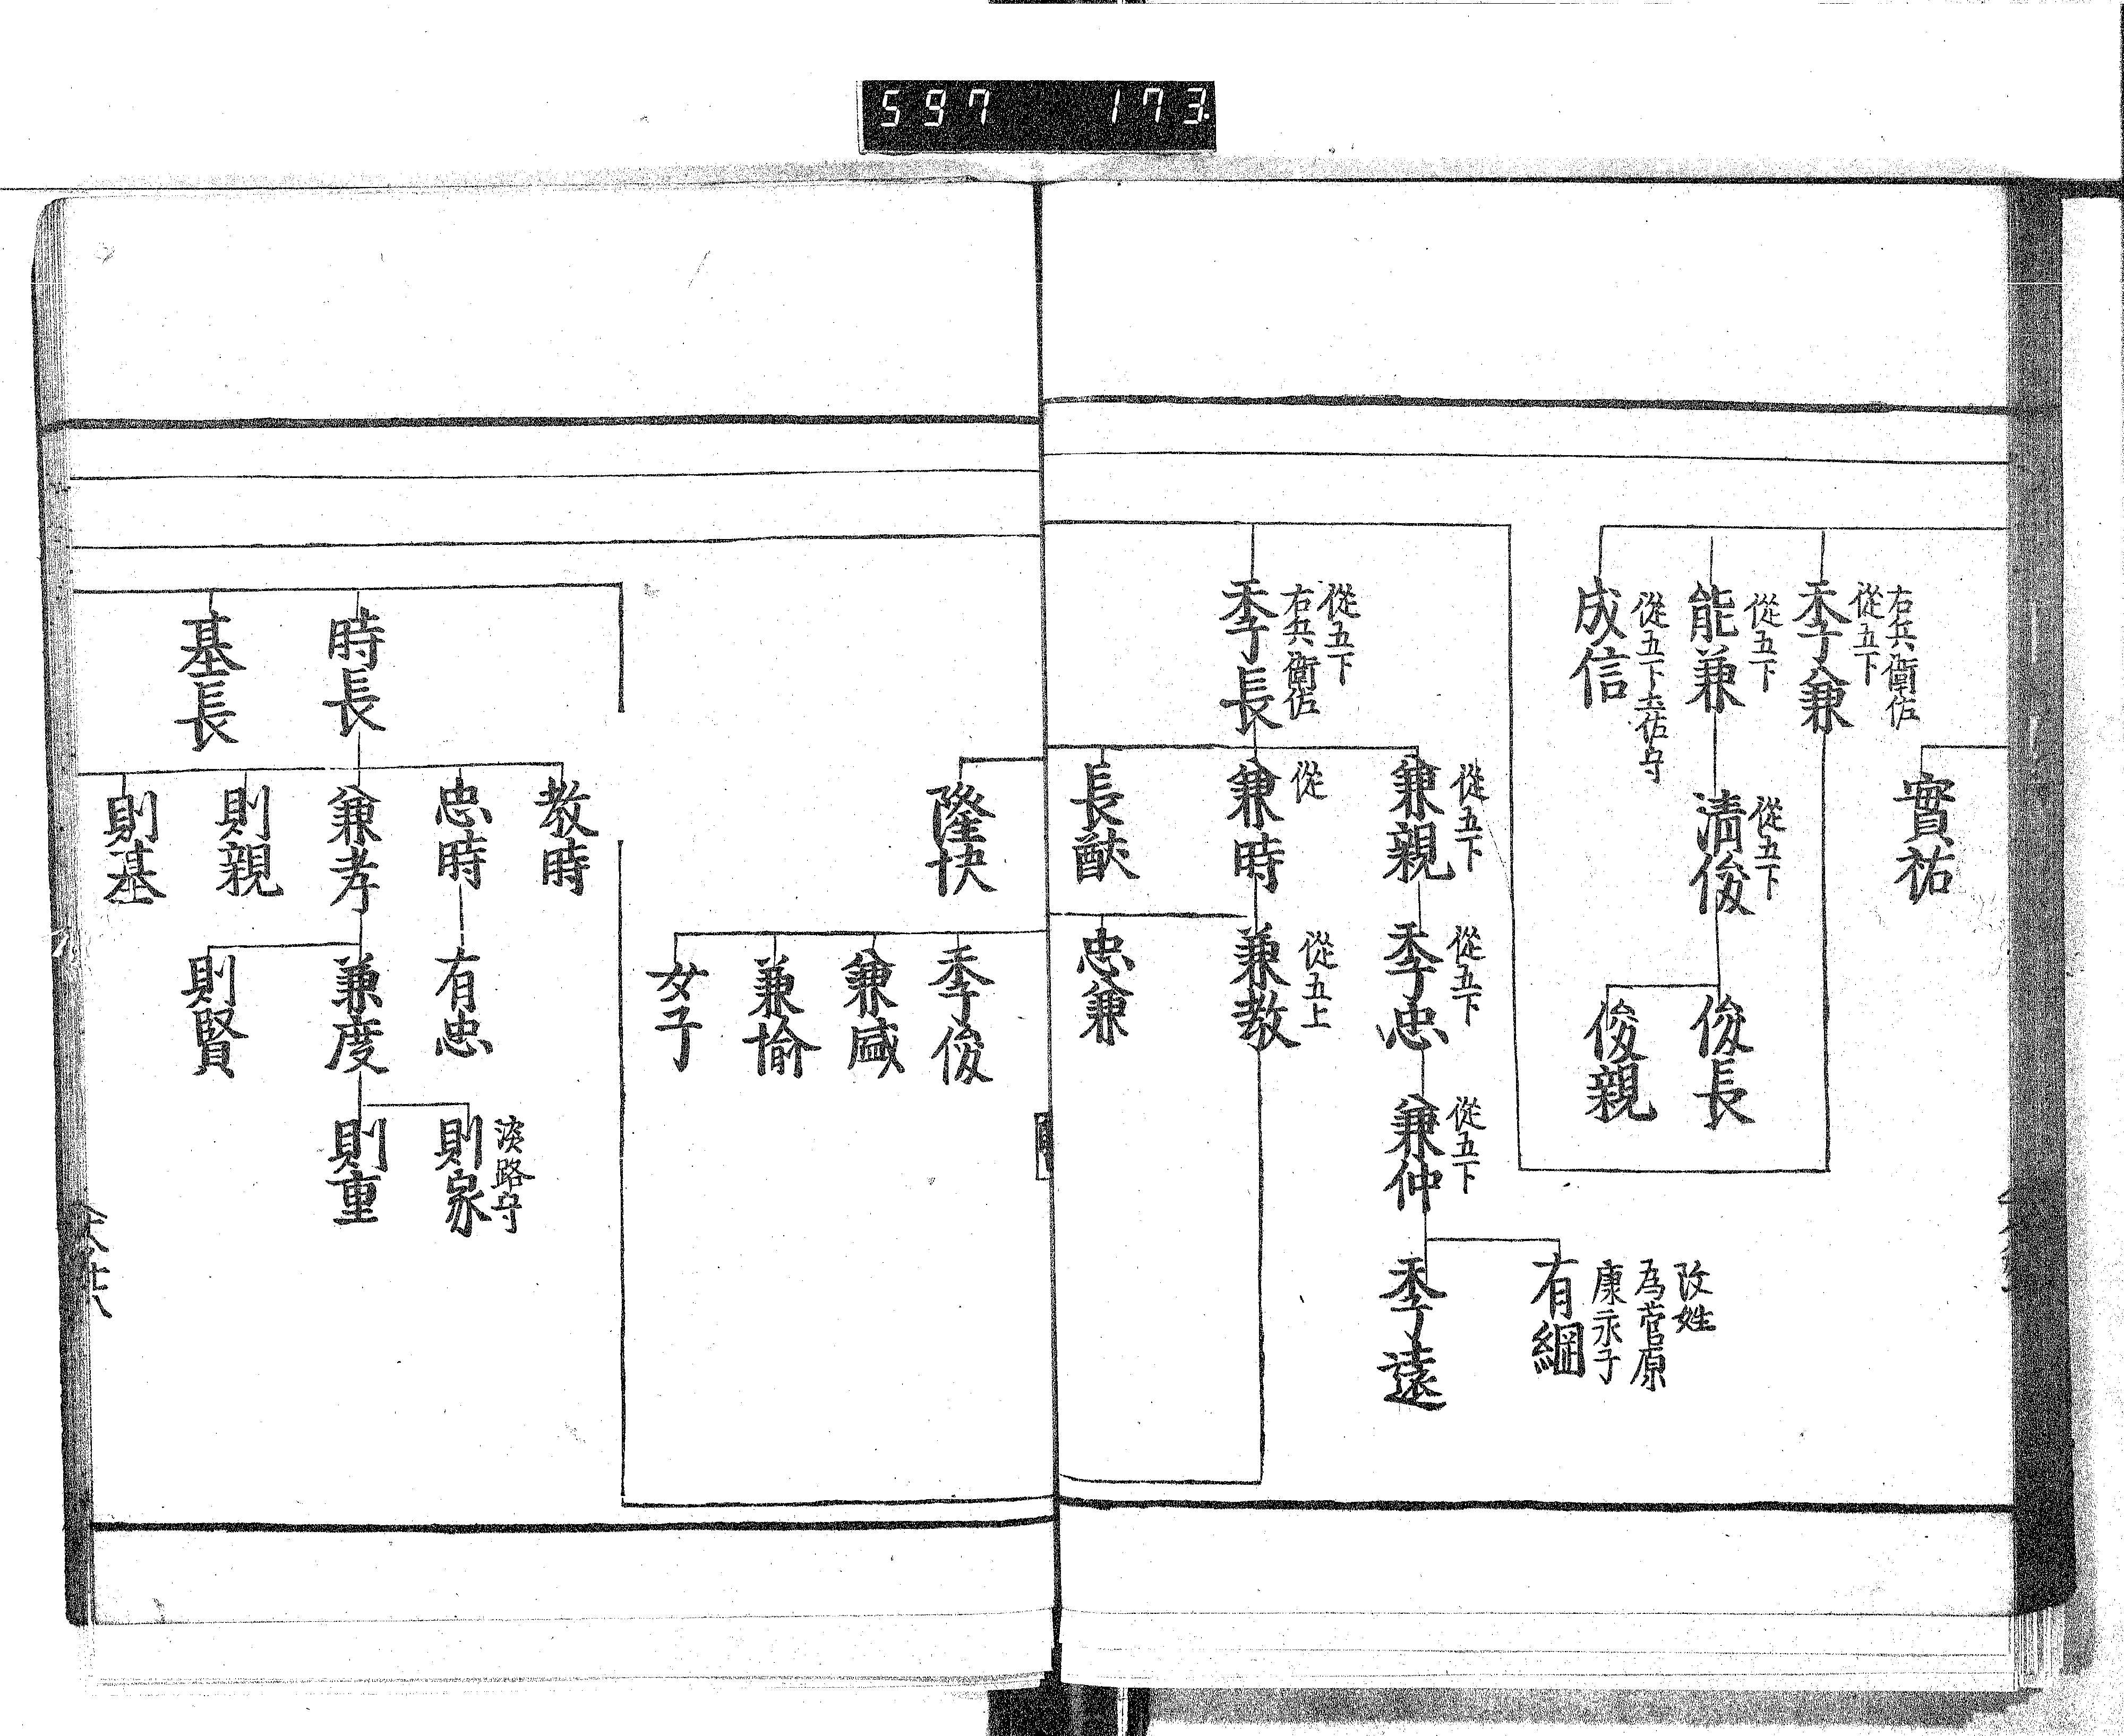 597 173
實祐
右兵衛佐
從五下
季兼
從五下
能兼
從五下
清俊
俊長
俊親
從五下土佐守
成信
從五下
右兵衛佐
季長
從五下
兼親
從五下
季忠
從五下
兼仲
改姓
為菅原
康永子
有綱
季遠
從
兼時
從五上
兼教
長猷
忠兼
隆快
季俊
兼咸
兼愉
女子
時長
基長
教時
忠時
有忠
兼孝
兼度
淡路守
則家
則重
則親
則賢
則基